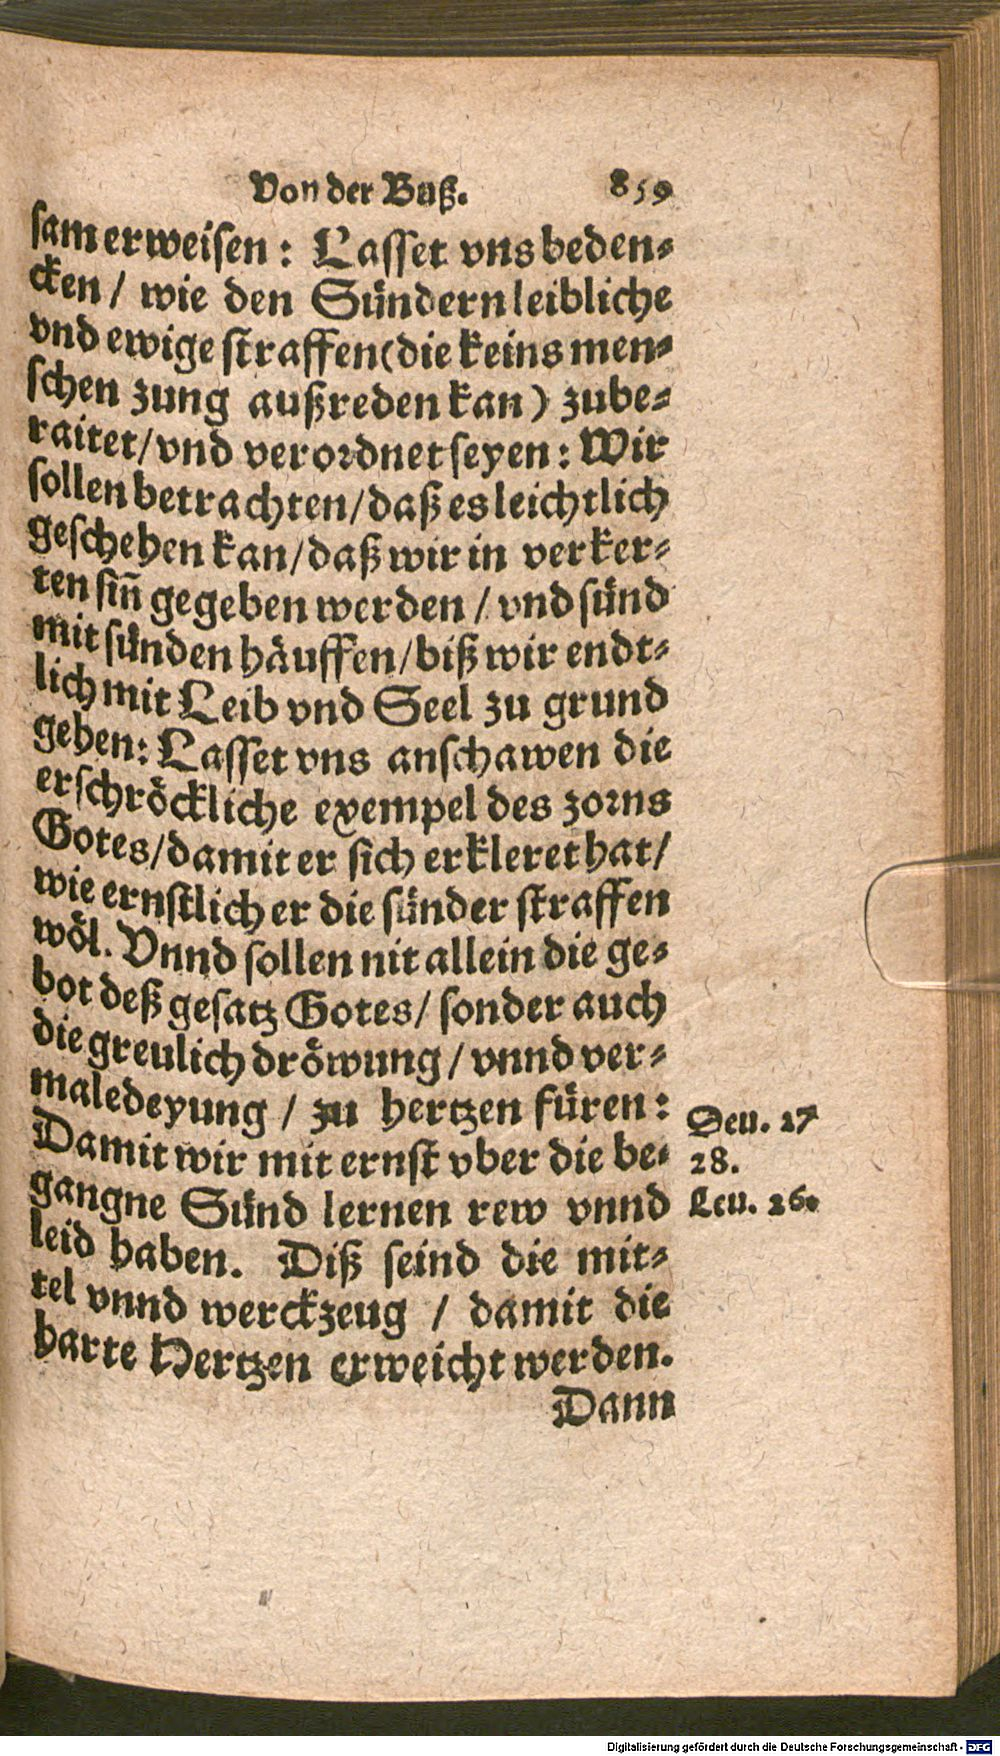 Von der Buß. 859
sam erweisen: Lasset vns beden-
cken / wie den Sündern leibliche
vnd ewige straffen (die keins men-
schen zung außreden kan) zube-
raitet / vnd verordnet seyen: Wir
sollen betrachten / daß es leichtlich
geschehen kan / daß wir in verker-
ten siñ gegeben werden / vnd sünd
mit sünden häuffen / biß wir endt-
lich mit Leib vnd Seel zu grund
gehen: Lasset vns anschawen die
erschröckliche exempel des zorns
Gotes / damit er sich erkleret hat /
wie ernstlich er die sünder straffen
wöl. Vnnd sollen nit allein die ge-
bot deß gesatz Gotes / sonder auch
die greulich dröwung / vnnd ver-
maledeyung / zu hertzen füren:
Damit wir mit ernst vber die be-
gangne Sünd lernen rew vnnd
leid haben. Diß seind die mit-
tel vnnd werckzeug / damit die
harte Hertzen erweicht werden.
Dann
Deu. 27
28.
Leu. 26.
Digitalisierung gefördert durch die Deutsche Forschungsgemeinschaft - DFG